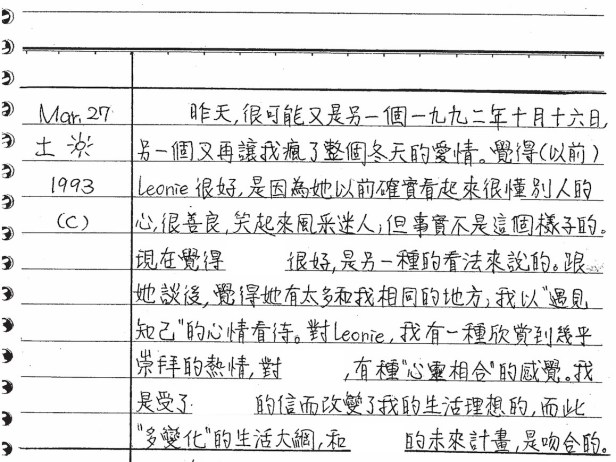 Mar. 27 昨天,很可能又是另一個一九九二年十月十六日,
土 另一個又再讓我瘋了整個冬天的愛情。覺得(以前)
1993 Leonie 很好,是因為她以前確實看起來很懂別人的
(C) 心,很善良,笑起來風采迷人;但事實不是這個樣子的。
現在覺得 很好,是另一種的看法來說的。跟
她談後,覺得她有太多和我相同的地方;我以"遇見
知己"的心情看待。對Leonie,我有一種欣賞到幾乎
崇拜的熱情,對 ,有種"心靈相合"的感覺。我
是受了 的信而改變了我的生活理想的,而此
"多變化"的生活大綱,和 的未來計畫,是吻合的。